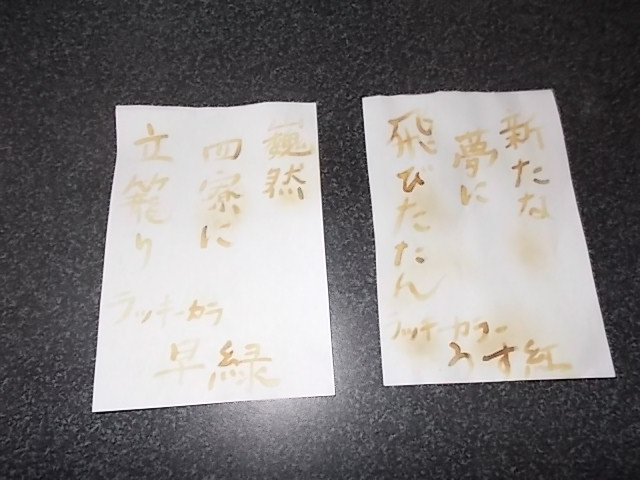 新たな
夢に
飛びたたん
ラッキーカラー
うす紅
巍然
四寮に
立籠り
ラッキーカラ
早緑